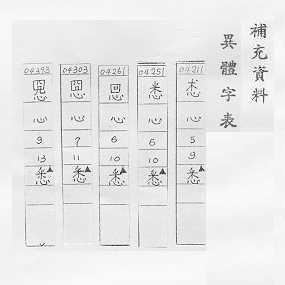 補充資料
異體字表
04211
心
5
9
悉
04251
心
6
10
悉
04261
心
6
10
悉
04303
心
7
11
悉
04393
心
9
13
悉